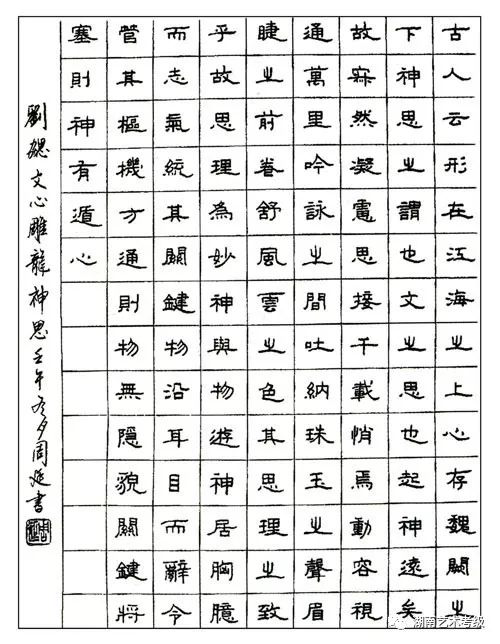 古人云形在江海之上心存魏闕之
下神思之謂也文之思也起神遠矣
故寂然凝慮思接千載悄焉動容視
通萬里吟詠之間吐納珠玉之聲眉
睫之前卷舒風雲之色其思理之致
乎故思理為妙神與物遊神居胸臆
而志氣統其關鍵物沿耳目而辭令
管其樞機方通則物無隱貌關鍵將
塞則神有遁心
劉勰文心雕龍神思壬午冬夕周延書
湖南艺术考级